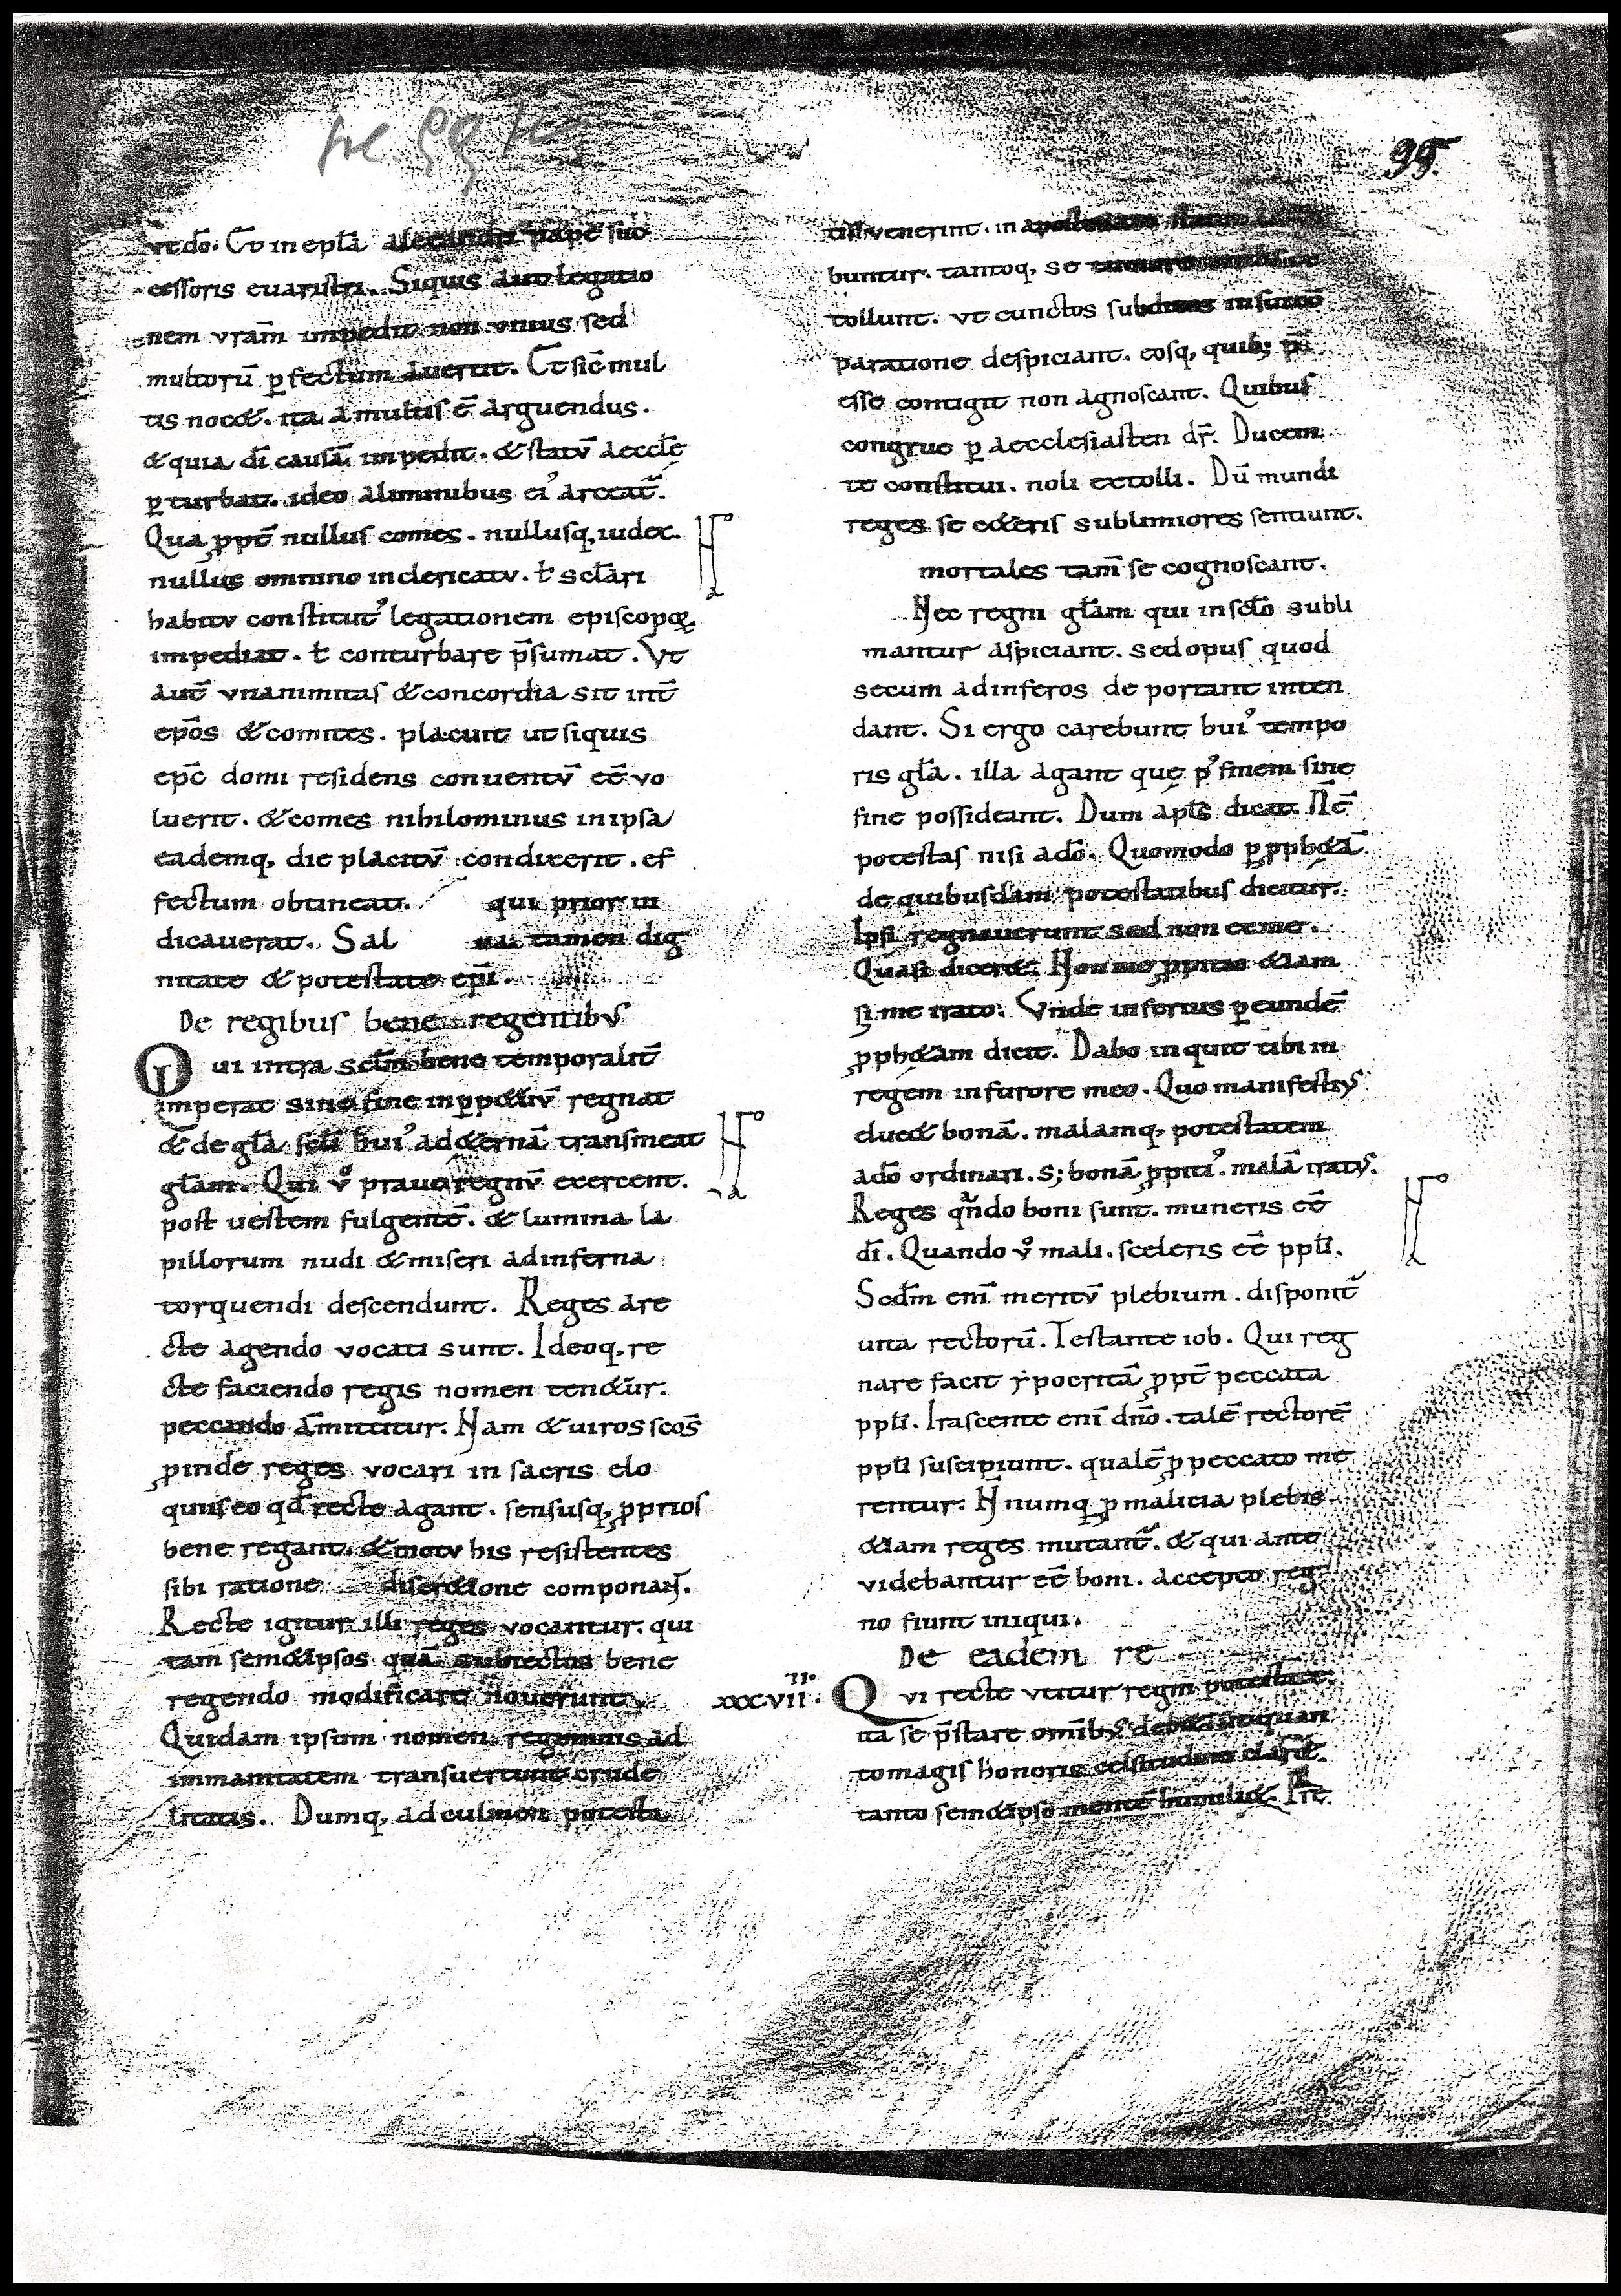 99.
vt dō. Et in epłā alexandri papę suc
cessoris euaristi. Siquis aut legatio
nem vrām impedit non vnius sed
multorū ꝑfectum auertit. Et sic̄ mul
tis noc&. ita a multis ē arguendus.
& quia dī causā impedit. & statū aeccłę
ꝑturbat. ideo aliminibus ei᾽ arceat᷑.
Qua ꝓpt̄ nullus comes. nullusq, iudex.
nullus omnino inclericatv. ł scłari
habitv constitut᾽ legationem episcopoꝝ
impediat. ł conturbare p̄sumat. Vt
aut̄ vnanimitas & concordia sit int̄
ep̄os & comites. placuit ut siquis
ep̄c domi residens conuentū eē vo
luerit. & comes nihilominus inipsa
eademq, die placitū condixerit. ef
fectum obtineat. qui prior in
dicauerat. Sal tamen dig
nitate & potestate ep̄i.
De regibus bene regentibus
Qui intra scłm bene temporalit̄
imperat sine fine inꝑp&uū regnat
& de głā scłi hui᾽ ad &ernā transmeat
głam. Qui v̊ praue regnū exercent.
post uestem fulgentē. & lumina la
pillorum nudi & miseri adinferna
torquendi descendunt. Reges are
cte agendo vocati sunt. Ideoq, re
cte faciendo regis nomen ten&ur.
peccando āmittitur. Nam & uiros sc̄os
ꝓinde reges vocari in sacris elo
quiis eo qđ recte agant. sensusq, ꝓprios
bene regant. & motv his resistentes
sibi ratione discr&ione componaꝝ.
Recte igitur illi reges vocantur. qui
tam sem&ipsos quā subiectos bene
regendo modificare nouerunt.
Quidam ipsum nomen regiminis ad
immanitatem transuertunt crude
litatis. Dumq, ad culmen potesta
tis venerint. in
buntur. tantoq, se
tollunt. vt cunctos subditos insuicō
paratione despiciant. eosq, quib; p̄
esse contigit non agnoscant. Quibus
congrue ꝑ aecclesiasten dr̄. Ducem
te constitui. noli extolli. Dū mundi
reges se c&eris sublimiores sentiunt.
mortales tam̄ se cognoscant.
Nec regni głam qui inscło subli
mantur aspiciant. sed opus quod
secum adinferos deportant inten
dant. Si ergo carebunt hui᾽ tempo
ris głā. illa agant quę p᾽ finem sine
fine possideant. Dum apłs dicat. Nē
potestas nisi adō. Quomodo ꝑ ꝓph&ā
de quibusdam potestatibus dicitur.
Ipsi regnauerunt sed non ex me.
Quasi dicer&. Non me ꝓpitio &iam
si me irato. Vnde inferius ꝑ eundē
ꝓph&am dicit. Dabo inquit tibi in
regem in furore meo. Quo manifestius
eluc& bonā. malamq, potestatem
adō ordinari. s; bonā ꝓpiti᾽. malā iratus.
Reges qn̄do boni sunt. muneris eē
dī. Quando v̊ mali. sceleris eē ppłi.
Scdm enī meritū plebium. disponit᷑
uita rectorū. Testante iob. Qui reg
nare facit ypocritā ꝓpt̄ peccata
ppłi. Irascente enī dn̄o. talē rectorē
ppłi suscipiunt. qualē ꝓ peccato me
rentur. Nnumq̄ ꝓ malicia plebis
&iam reges mutant᷑. & qui ante
videbantur eē boni. accepto reg
no fiunt iniqui.
De eadem re
xxxvii. Qvi recte vtitur regni potestate.
ita se p̄stare omīb; deb& ut quan
tomagis honoris celsitudine clar&.
tanto sem&ipso mente humili&.